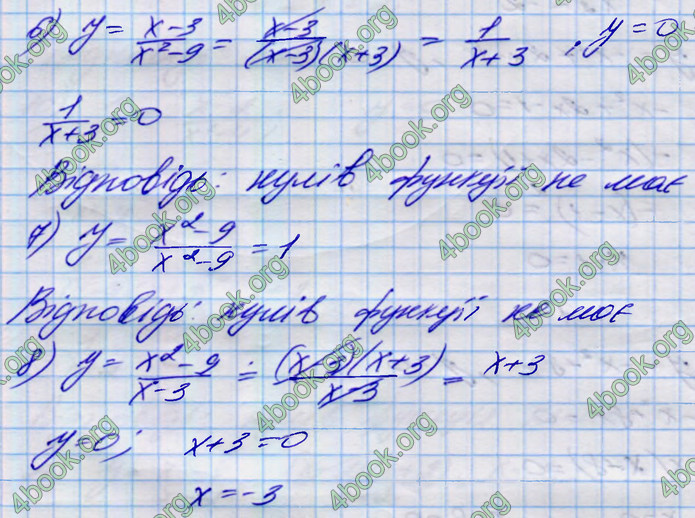 6) y = x-3 / x²-9 = x-3 / (x-3)(x+3) = 1 / x+3 ; y = 0
1 / x+3 = 0
Відповідь: нулів функції не має
7) y = x²-9 / x²-9 = 1
Відповідь: нулів функції не має
8) y = x²-9 / x-3 = (x-3)(x+3) / x-3 = x+3
y=0; x+3=0
x=-3
4book.org